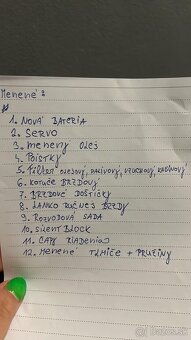 Menené :
1. NOVÁ BATERIA
2. SERVO
3. MENENY OLEJ
4. POISTKY
5. FILTER OLEJOVÝ, PALIVOVÝ, VZUCHOVÝ KABÍNOVÝ
6. KOTUČE BRZDOVÝ
7. BRZDOVÉ DOŠTIČKY
8. LANKO RUČNEJ BRZDY
9. ROZVODOVÁ SADA
10. SILENT BLOCK
11. ČAPY RIADENIA
12. MENENÉ TLMIČE + PRUŽINY